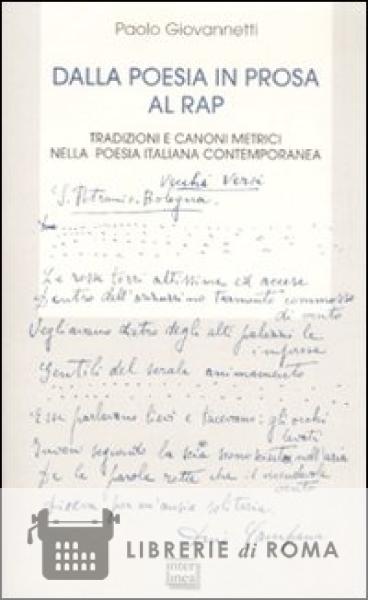 Paolo Giovannetti
DALLA POESIA IN PROSA
AL RAP
TRADIZIONI E CANONI METRICI
NELLA POESIA ITALIANA CONTEMPORANEA
Vecchi Versi
S. Petronio. Bologna.
Le rosse torri altissime ed accese
Dentro dell'azzurrino tramonto commosso
di vento
Vegliavano dietro degli alti palazzi le
imposte
Gentili del serale animamento
Esse parlavano lievi e tacevano: gli occhi
levati
Invan seguendo la scia nell'aria
De la parola rotta che il
vento
diceva per un'ansia solitaria.
Dino Campana
LIBRERIE di ROMA
inter
linea